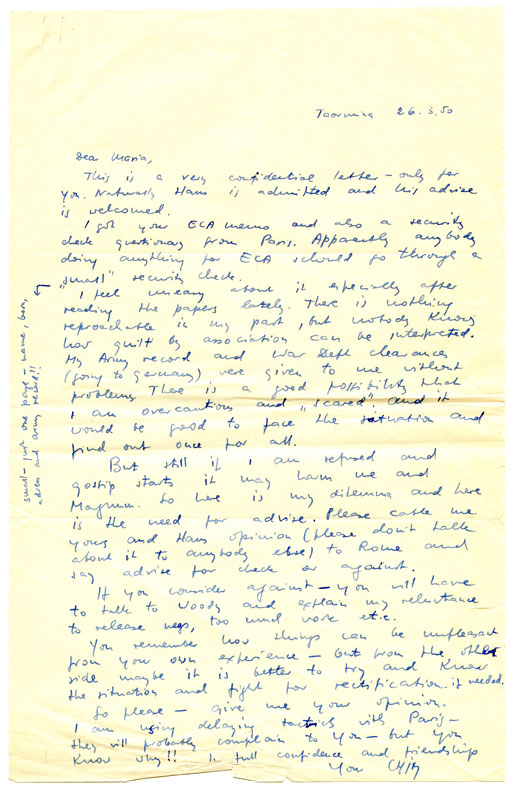 Taormina 26.3.50
Dear Maria,
This is a very confidential letter – only for
you. Naturally Hans is admitted and his advise
is welcomed.
I got your ECA memo and also a security
check questionary from Paris. Apparently anybody
doing anything for ECA should go through a
"small" security check.
I feel uneasy about it especially after
reading the papers lately. There is nothing
reproachable in my part, but nobody knows
how guilt by association can be interpreted.
My Army record and War Dept clearances
(going to Germany) were given to me without
problems. There is a good possibility that
I am overcautious and "scared" and it
would be good to face the situation and
find out once for all.
But still if I am refused and
gossip starts it may harm me and
Magnum. So here is my dilemma and here
is the need for advise. Please cable me
yours and Hans opinion (please don't talk
about it to anybody else) to Rome and
say advise for check or against.
If you consider against – you will have
to talk to Woody and explain my reluctance
to release negs, too much work etc.
You remember how things can be unpleasant
from your own experience – but from the other
side maybe it is better to try and know
the situation and fight for rectification if needed.
So please – give me your opinion.
I am using delaying tactics with Paris –
they will probably complain to you – but you
know why!! In full confidence and friendship
Your CHIM
small – just one page – name, born,
adress and army record!!